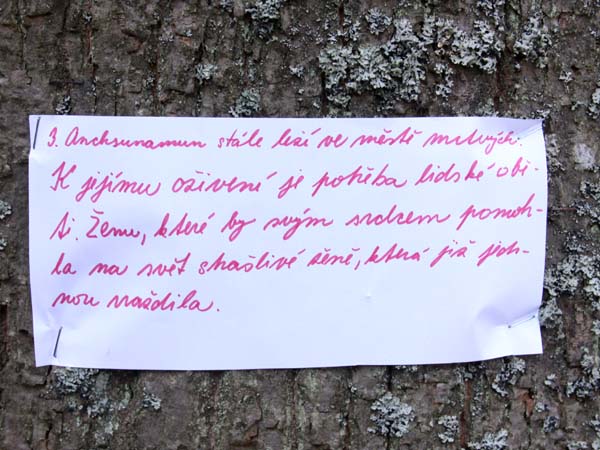 3. Anchsunamun stále leží ve městě mrtvých.
K jejímu oživení je potřeba lidské obě-
ti. Ženu, které by svým srdcem pomoh-
la na svět strašlivé ženě, která již jed-
nou vraždila.